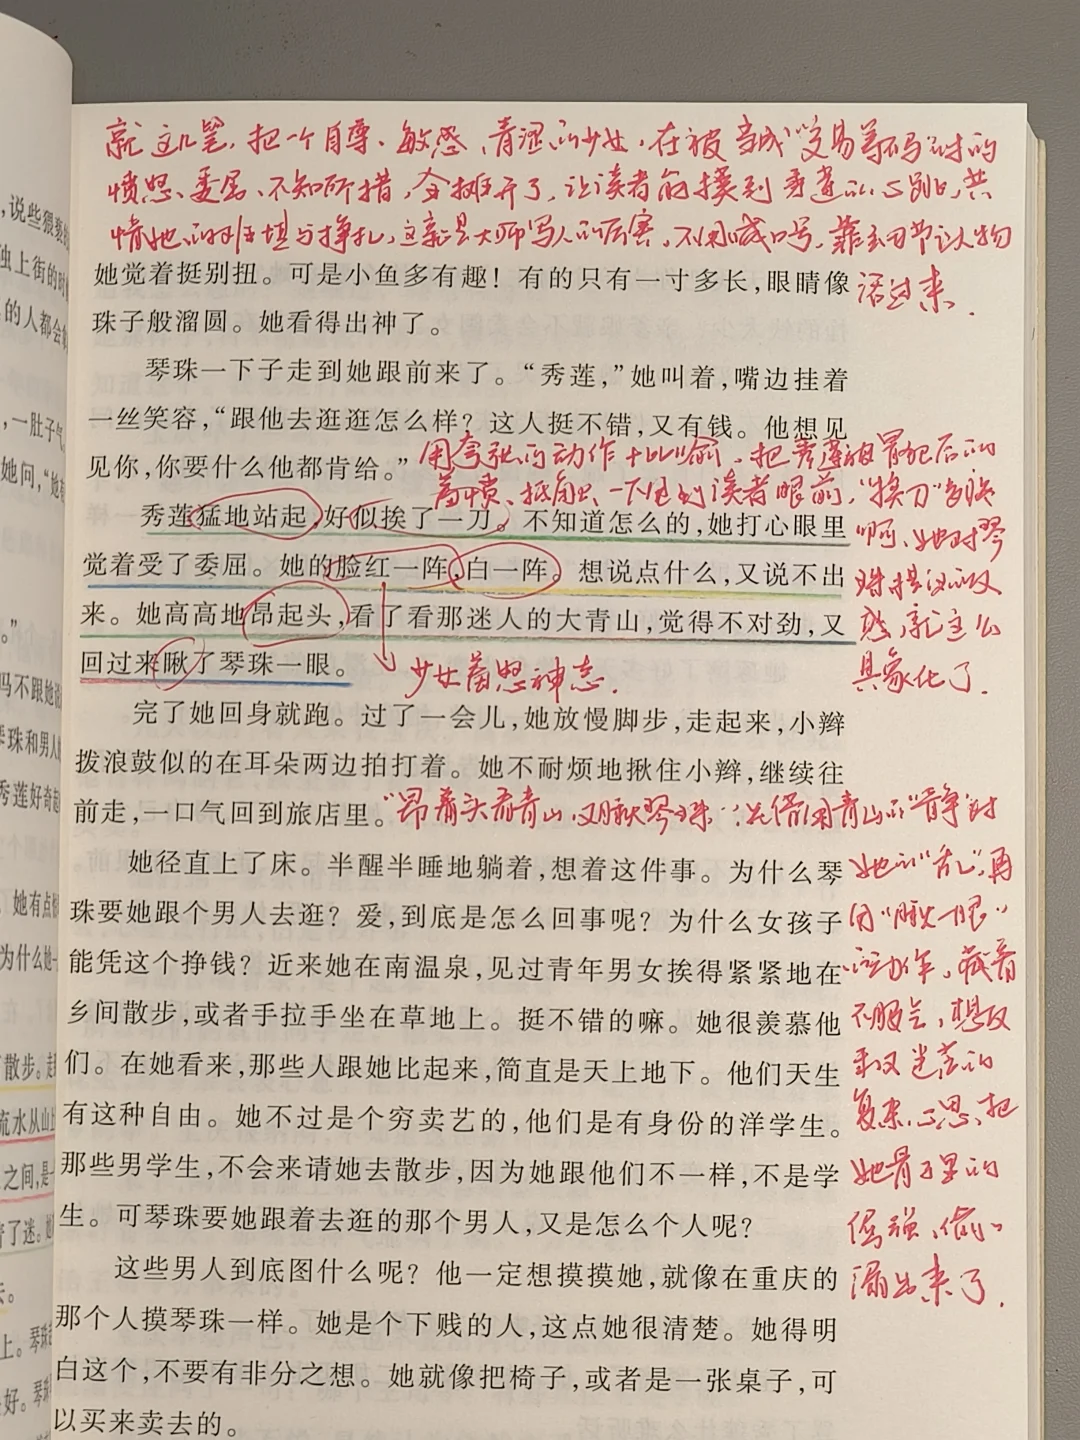 就这几笔，把一个自尊、敏感、青涩的少女，在被当成"交易筹码"时的
愤怒、委屈、不知所措，全摊开了，让读者能摸到秀莲的心跳，共
情她的难堪与挣扎，这就是大师写人的厉害，不用喊口号，靠细节让人物
活过来．
她觉着挺别扭。可是小鱼多有趣！有的只有一寸多长，眼睛像
珠子般溜圆。她看得出神了。
琴珠一下子走到她跟前来了。“秀莲，”她叫着，嘴边挂着
一丝笑容，“跟他去逛逛怎么样？这人挺不错，又有钱。他想见
见你，你要什么他都肯给。”
用夸张的动作+比喻，把秀莲被冒犯后的
羞愤、抵触，一下甩到读者眼前，"挨刀"多疼
啊，她对琴
珠提议的反
感，就这么
具象化了．
秀莲猛地站起，好似挨了一刀。不知道怎么的，她打心眼里
觉着受了委屈。她的脸红一阵，白一阵。想说点什么，又说不出
来。她高高地昂起头，看了看那迷人的大青山，觉得不对劲，又
回过来瞅了琴珠一眼。
少女羞怒神态．
完了她回身就跑。过了一会儿，她放慢脚步，走起来，小辫
拨浪鼓似的在耳朵两边拍打着。她不耐烦地揪住小辫，继续往
前走，一口气回到旅店里。
"昂着头看青山，又瞅琴珠：先借用青山的"静"衬
她的"乱"，再
用"瞅一眼"
的动作，藏着
不服气，想反
驳又迷茫的
复杂心思，把
她骨子里的
倔强，偷偷
漏出来了．
她径直上了床。半醒半睡地躺着，想着这件事。为什么琴
珠要她跟个男人去逛？爱，到底是怎么回事呢？为什么女孩子
能凭这个挣钱？近来她在南温泉，见过青年男女挨得紧紧地在
乡间散步，或者手拉手坐在草地上。挺不错的嘛。她很羡慕他
们。在她看来，那些人跟她比起来，简直是天上地下。他们天生
有这种自由。她不过是个穷卖艺的，他们是有身份的洋学生。
那些男学生，不会来请她去散步，因为她跟他们不一样，不是学
生。可琴珠要她跟着去逛的那个男人，又是怎么个人呢？
这些男人到底图什么呢？他一定想摸摸她，就像在重庆的
那个人摸琴珠一样。她是个下贱的人，这点她很清楚。她得明
白这个，不要有非分之想。她就像把椅子，或者是一张桌子，可
以买来卖去的。